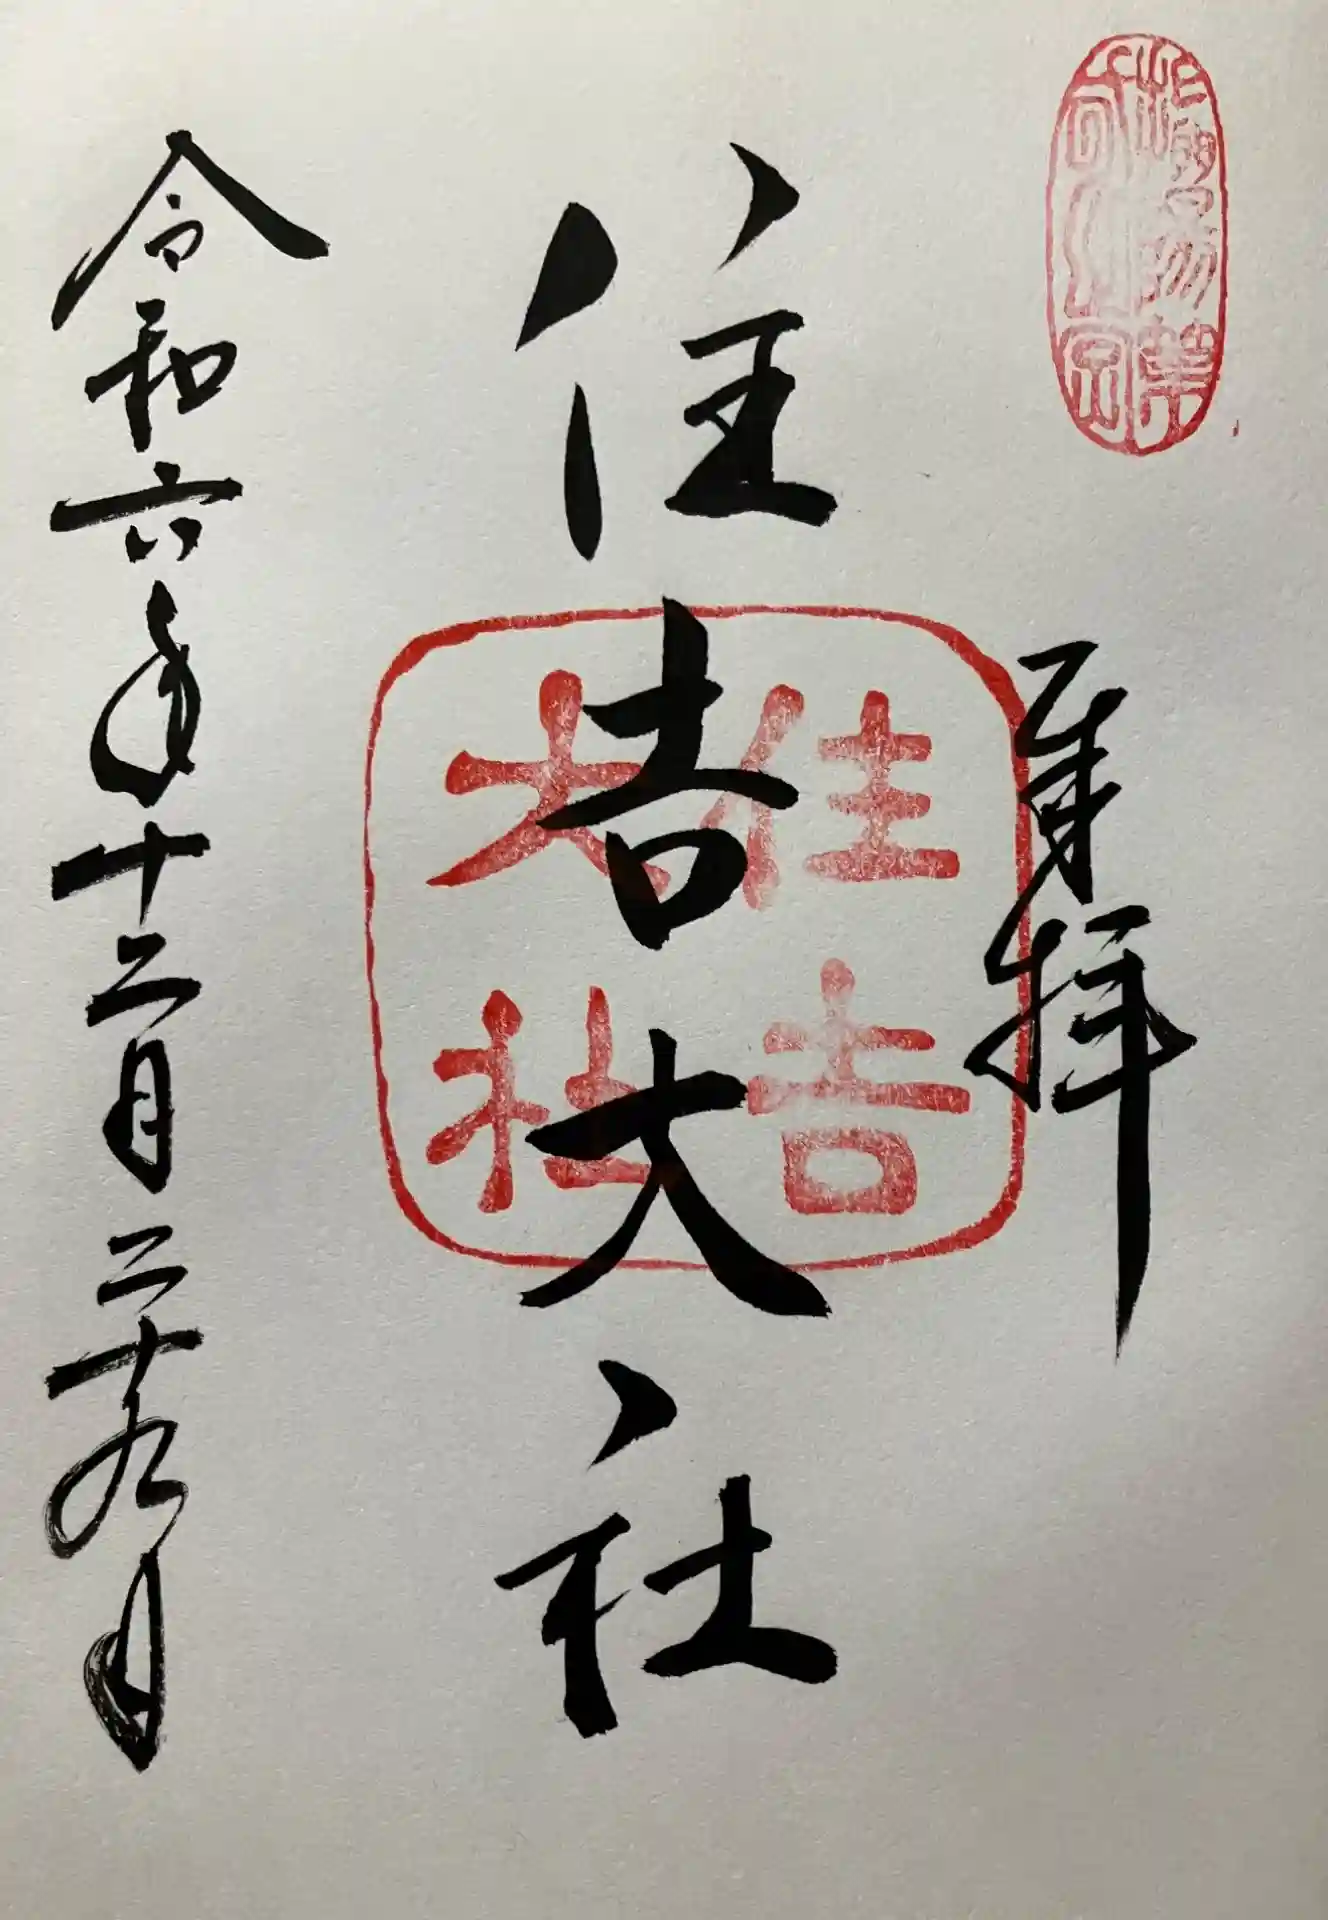 奉拝
住吉大社
住吉
大社
令和六年十二月二十九日